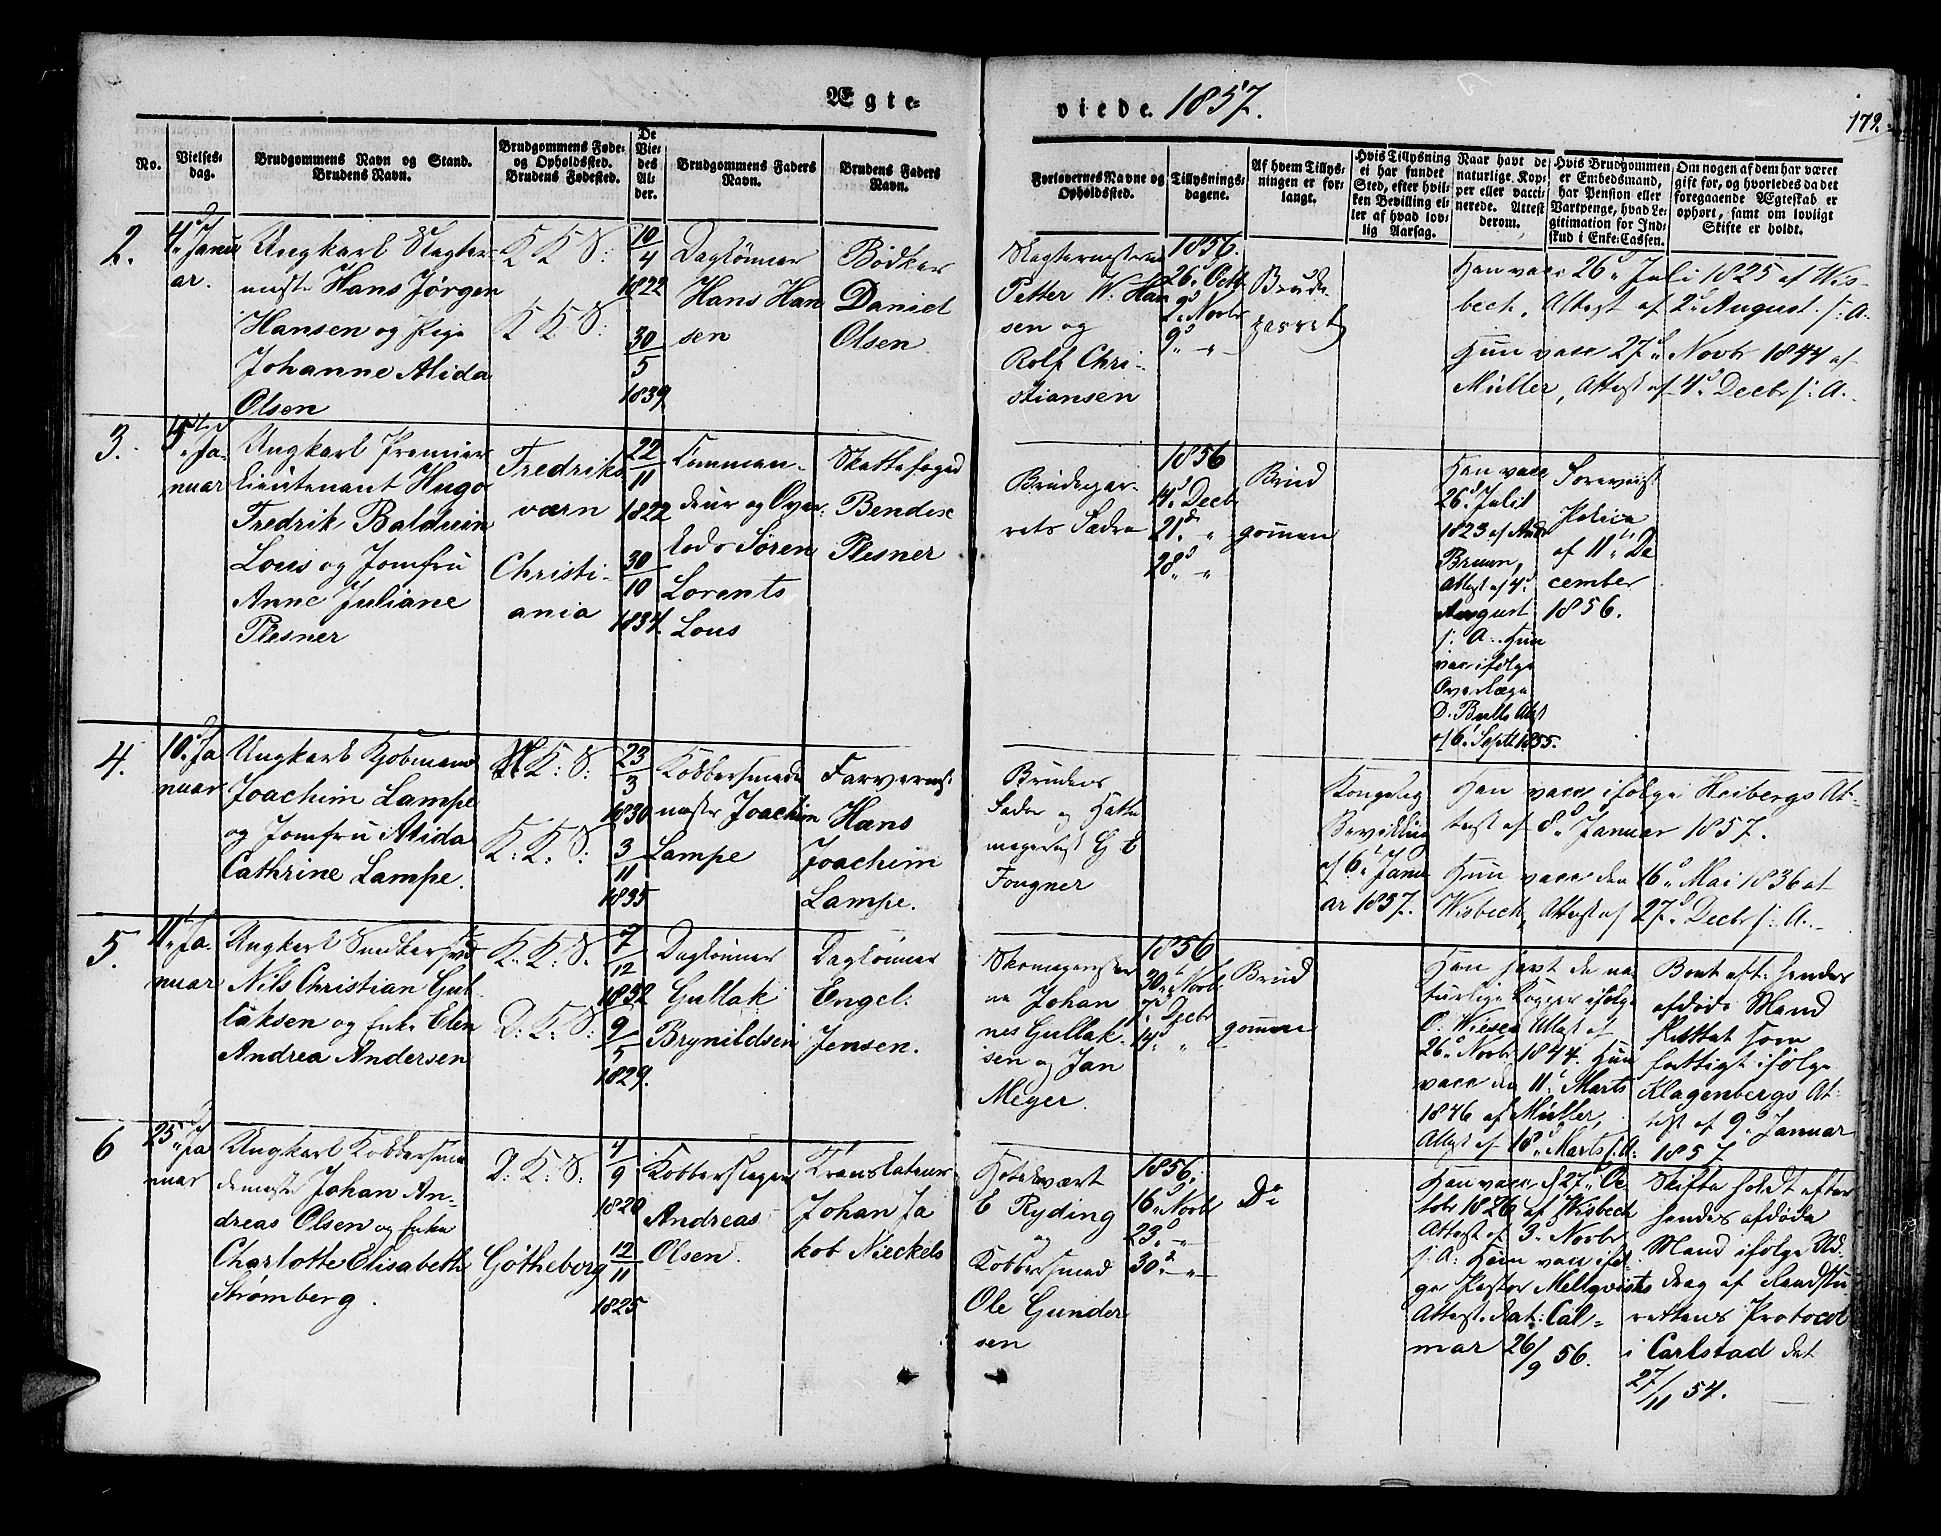 Ægte-
viede. 1857.
179.
No.
Vielses-
dag.
Brudgommens Navn og Stand.
Brudens Navn.
Brudgommens Føde-
og Opholdssted.
Brudens Fødested.
De
Vie-
des
Al-
der.
Brudgommens Faders
Navn.
Brudens Faders
Navn.
Forlovernes Navne og
Opholdssted.
Tillysnings-
dagene.
Af hvem Tillys-
ningen er for-
langt.
Hvis Tillysning
ei har fundet
Sted, efter hvil-
ken Bevilling el-
ler af hvad lov-
lig Aarsag.
Naar havt de
naturlige Kop-
per eller vacci-
nerede. Attest
derom.
Hvis Brudgommen
er Embedsmand,
har Pension eller
Vartpenge, hvad Le-
gitimation for Ind-
skud i Enke-Cassen.
Om nogen af dem har været
gift før, og hvorledes da det
foregaaende Ægteskab er
ophørt, samt om lovligt
Skifte er holdt.
2.
4d Janu
ar.
Ungkarl Slagter-
mest. Hans Jørgen
Hansen og Pige
Johanne Alida
Olsen
K K S:
K K S:
10
4
1822
30
5
1839
Daglønner
Hans Han
sen
Bødker
Daniel
Olsen
Slagtermestere
Petter W. Han
sen og
Rolf Chri-
stiansen
1856.
26d Octb
2d Novbr
9d "
Brude
parret
Han vacc 26d Juli 1825 af Wis-
bech, Attest af 2d August s: A.
Hun vacc 27d Novbr 1844 af
Müller, Attest af 4d Decbr s: A.
3.
5te Ja-
nuar
Ungkarl Premier
lieutenant Hugo
Fredrik Balduin
Lous og Jomfru
Anne Juliane
Plesner
Fredriks
værn
Christi-
ania
22
11
1822
30
10
1834.
Comman-
deur og Over
lods Søren
Lorents
Lous
Skattefoged
Bendix
Plesner
Brudepar-
rets Fædre
1856
14d Decb
21d "
28d "
Brud
gomen
Han vacc
26d Juli
1823 af
Bruun,
Attest af 4d
August
s: A. Hun
vacc ifølge
Overlæge
D. Bulls Atst
af 6 Septb 1855.
Forevist
Police
af 11te De
cember
1856.
4.
10d Ja
nuar
Ungkarl Kjøbmand
Joachim Lampe
og Jomfru Alida
Cathrine Lampe.
K: S:
K: K: S:
23
3
1830
3
11
1835
Kobbersmede
mester Joachim
Lampe
Farverm:
Hans
Joachim
Lampe.
Brudens
Fader og Hatte
magermst G E
Fougner
Kongelig
Bevilling
af 6te Janu
ar 1857.
Han vacc ifølge Heibergs At-
test af 8d Januar 1857.
Hun vacc den 16d Mai 1836 af
Wisbech, Attest af 27d Decbr s: A.
5.
11te Ja-
nuar
Ungkarl Snedkersvd
Nils Christian Gul
laksen og Enke Elen
Andrea Andersen
K. K: S.
D: K: S:
7
12
1832
9
5
1829.
Daglønner
Gullak
Brynildsen
Daglønner
Engel:
Jensen.
Skomagermster
ne Johan
nes Gullak-
sen og Jan
Meyer.
1856
30te Novbr
7d Decbr
14d "
Brud
gomen
Han havt de na
turlige Kopper ifølge
O. Wiese Attest af
26d Novbr 1844. Hun
vacc den 11te Marts
1846 af Müller,
Attest af 18d Marts s: A:
Boet eft. hendes
afdøde Mand
fattigt ifølge
Klagenbergs At-
test af 9d Januar
1857
6
25d Ja
nuar
Ungkarl Kobbersme
demester Johan An-
dreas Olsen og Enke
Charlotte Elisabeth
Strømberg.
D: K: S:
Götheborg
4
9
1820
12
11
1825
Kobberslager
Andreas
Olsen.
Translateur
Johan Ja
kob Nieckels
Hotelvært
E Ryding
og
Kobbersmed
Ole Gunder
sen
1856.
16d Novbr
23d "
30d "
Do
Han vacc d 27d Oc
tobr 1826 af Wisbech
Attest af 3d Novbr
s: A: Hun vacc iføl
ge Pastor Mellqvists
Attest. dat: Cal-
mar 26/9 56.
Skifte holdt efter
hendes afdøde
Mand ifølge Ud-
drag af Raadstu
rettens Protocol
i Carlstad det
27/11 54.